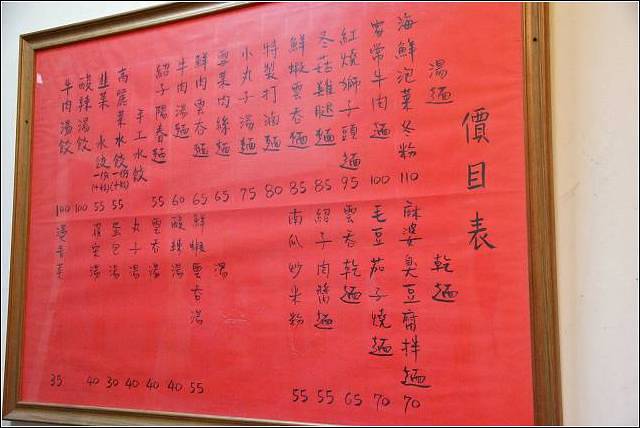 價目表
湯麵
海鮮泡菜冬粉 110
家常牛肉麵 100
紅燒獅子頭麵 95
冬菇雞腿麵 85
鮮蝦雲吞麵 85
特製打滷麵 80
小丸子湯麵 75
雪菜肉絲麵 65
鮮肉雲吞麵 65
牛肉湯麵 60
紹子陽春麵 55
手工水餃
高麗菜水餃一份(十粒) 55
韭菜水餃一份(十粒) 55
酸辣湯餃 100
牛肉湯餃 100
乾麵
麻婆臭豆腐拌麵 70
毛豆茄子燒麵 70
雲吞乾麵 65
紹子肉醬麵 55
南瓜炒米粉 55
湯
鮮蝦雲吞湯 55
酸辣湯 40
雲吞湯 40
丸子湯 40
蛋包湯 30
湯 40
燙青菜 35